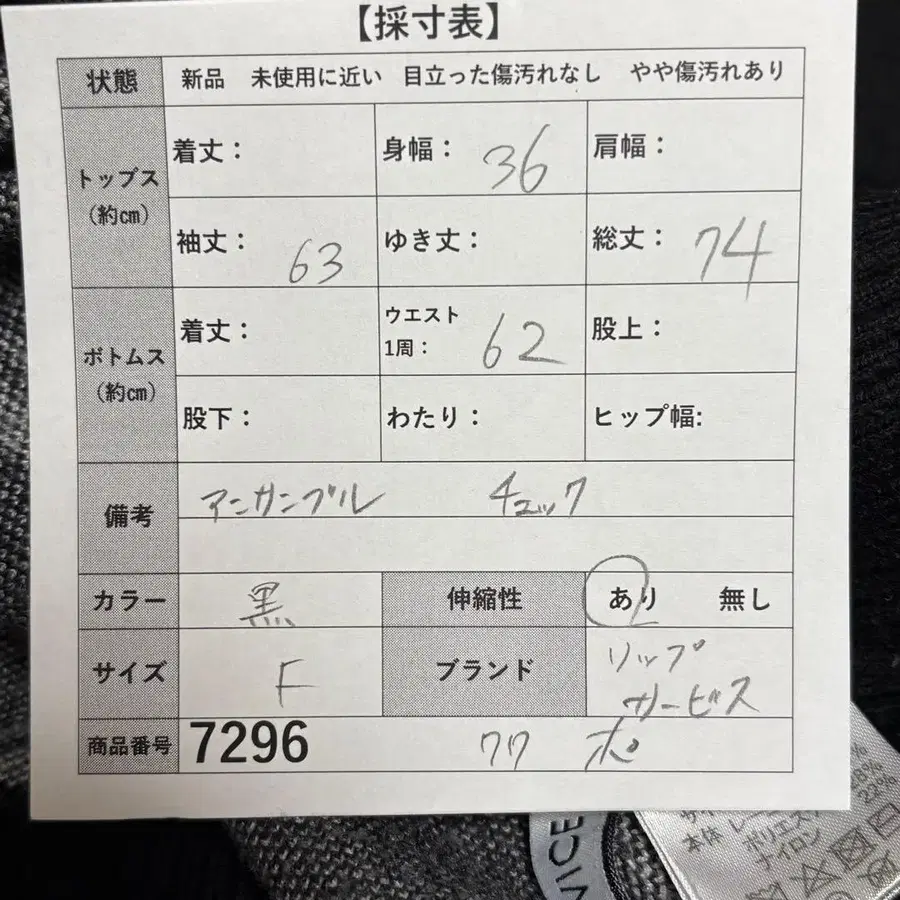 【採寸表】
状態 新品 未使用に近い 目立った傷汚れなし やや傷汚れあり
トップス (約㎝)
着丈： 身幅： 36 肩幅：
袖丈： 63 ゆき丈： 総丈： 74
ボトムス (約㎝)
着丈： ウエスト 1周： 62 股上：
股下： わたり： ヒップ幅:
備考 アンサンブル チェック
カラー 黒 伸縮性 あり 無し
サイズ F ブランド リップ サービス
商品番号 7296 77 ポ
VICE
%
8%
22%
本体 レー
ポリエス
ナイロン